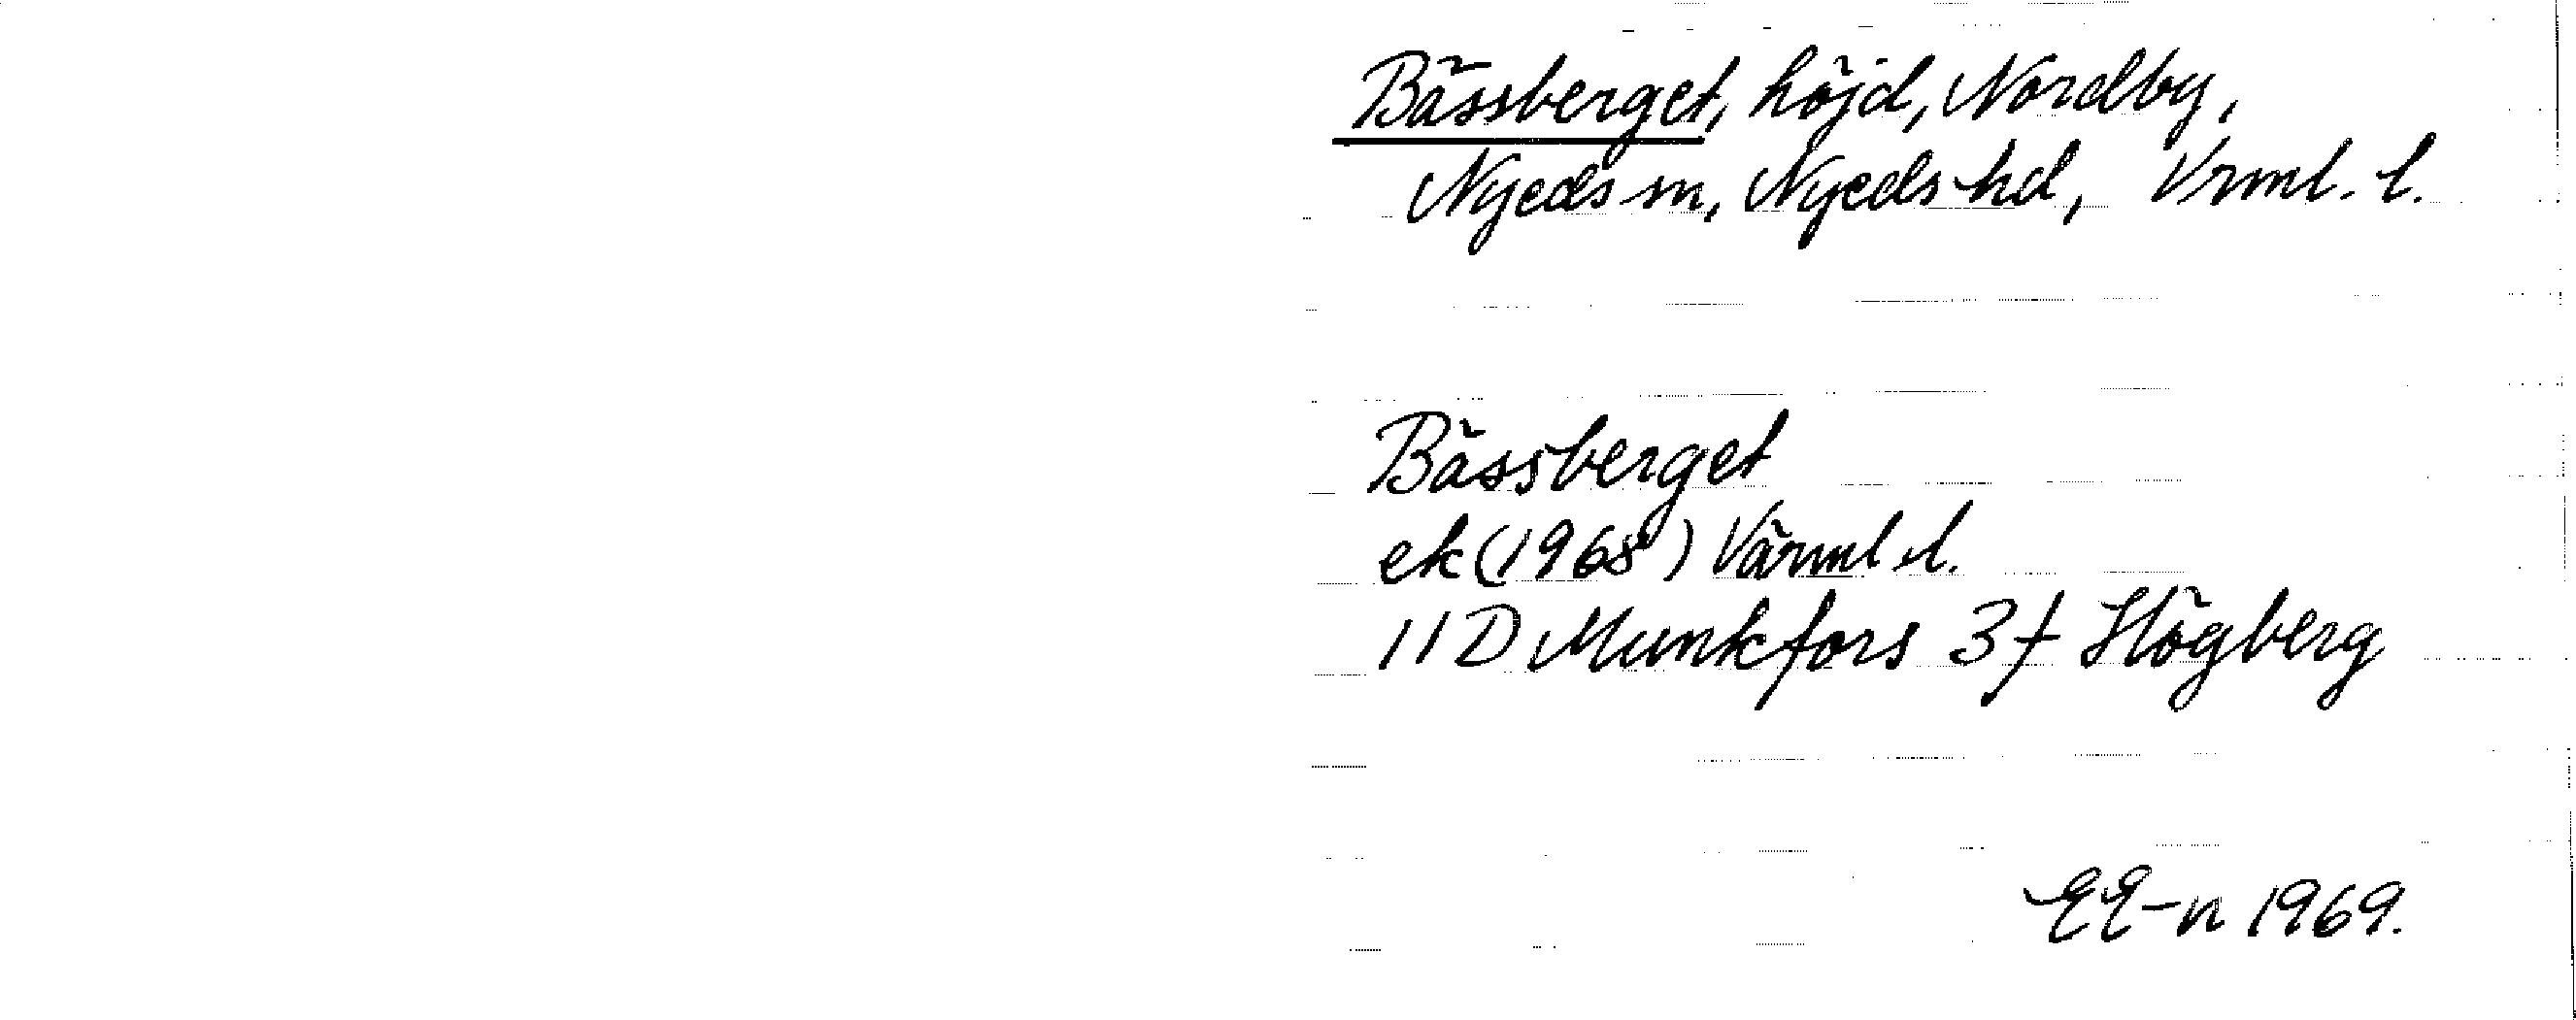 Bässberget, höjd, Nordby,
Nyeds sn, Nyeds hd, Vrml. l.
Bässberget
ek (1968) Värml l.
11 D Munkfors 3 f Högberg
EE-n 1969.